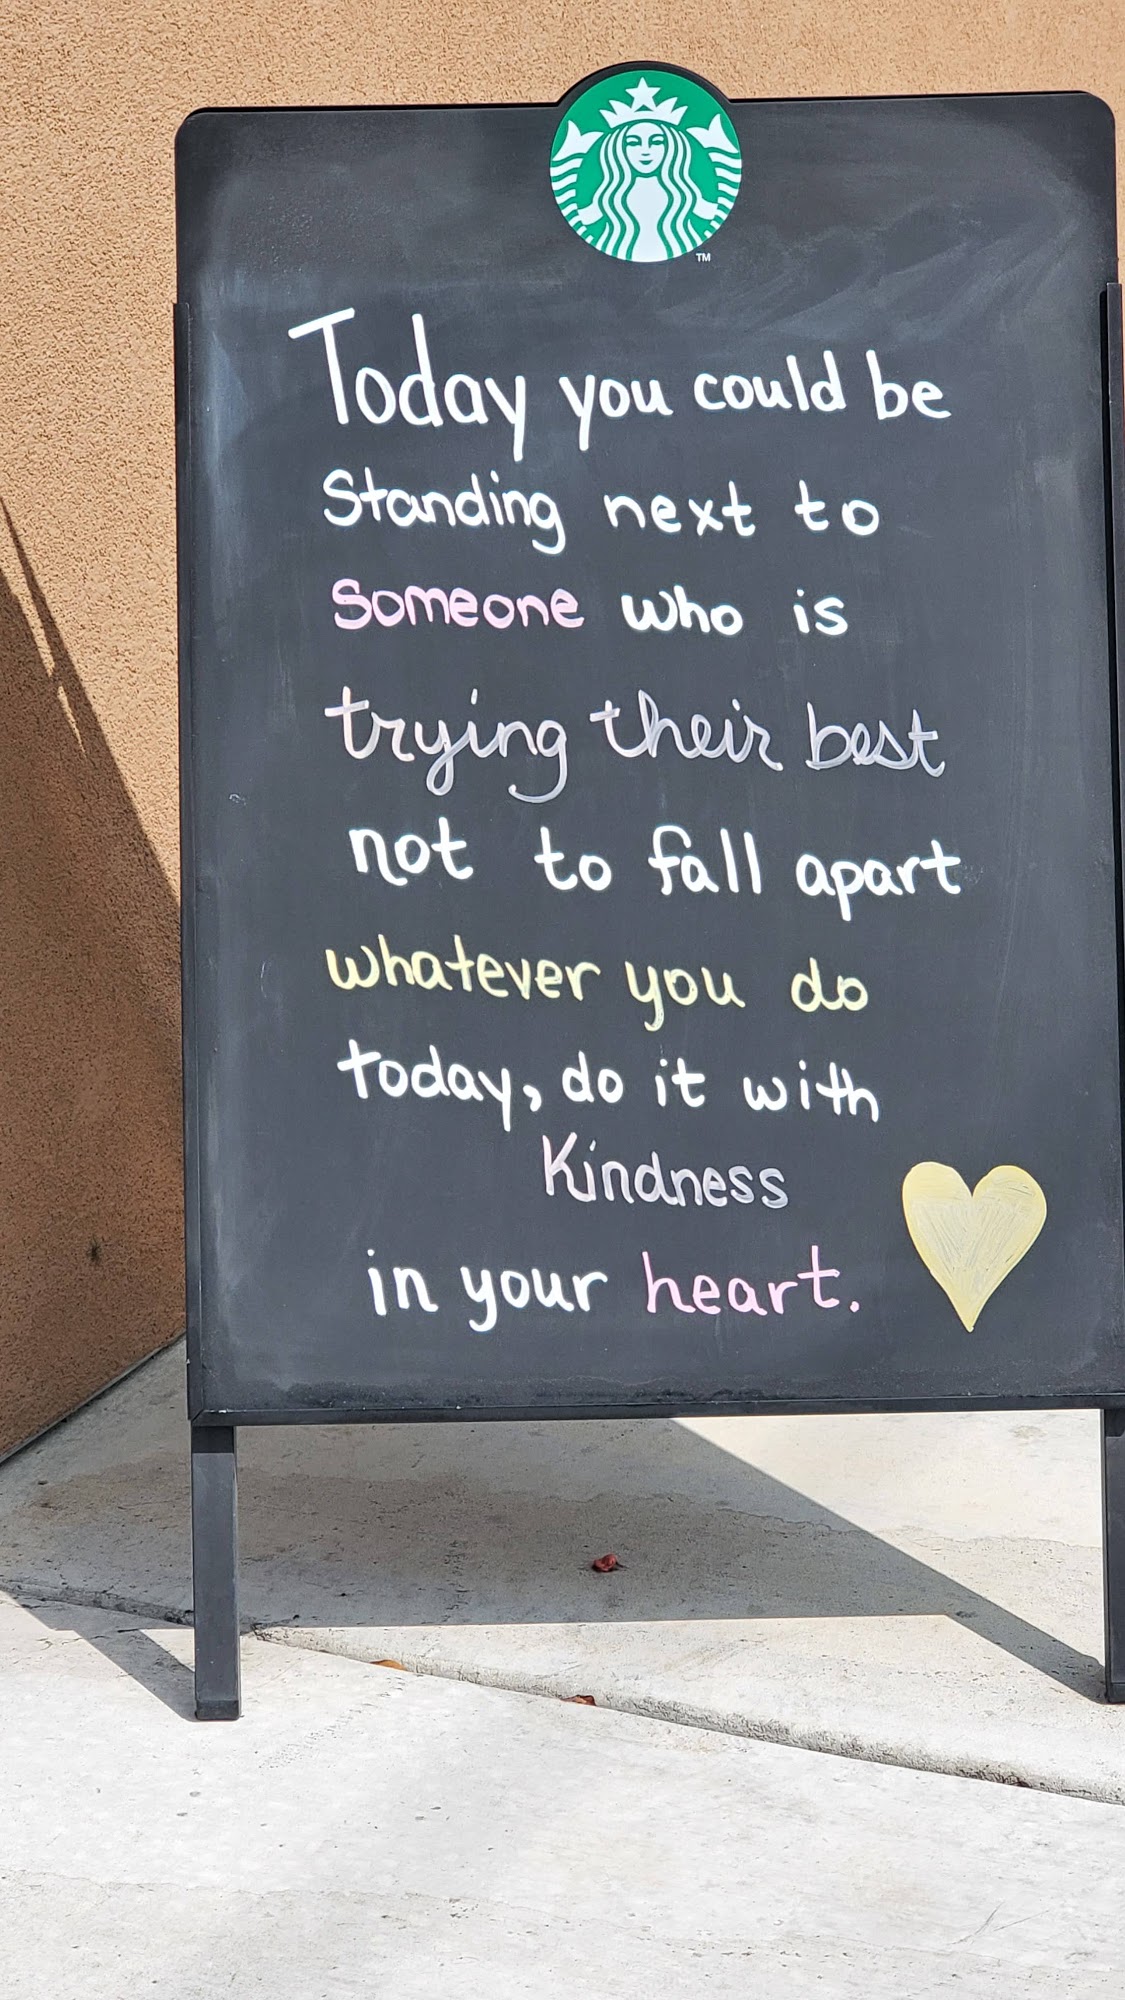 TM
Today you could be
Standing next to
Someone who is
trying their best
not to fall apart
whatever you do
today, do it with
Kindness
in your heart.